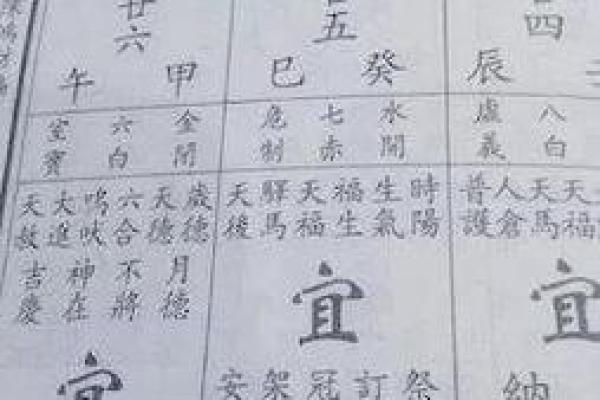 四
辰
八白
虛義
天福
天馬
人倉
普護
宜
納
五
癸
巳
水開
七赤
危制
時陽
生氣
福生
天福
驛馬
天後
宜
祭
訂
冠
架
安
廿六
甲
午
金閉
六白
室寶
歲德
天德
六合
鳴吠
大進
天赦
月德
不將
神在
吉慶
宜